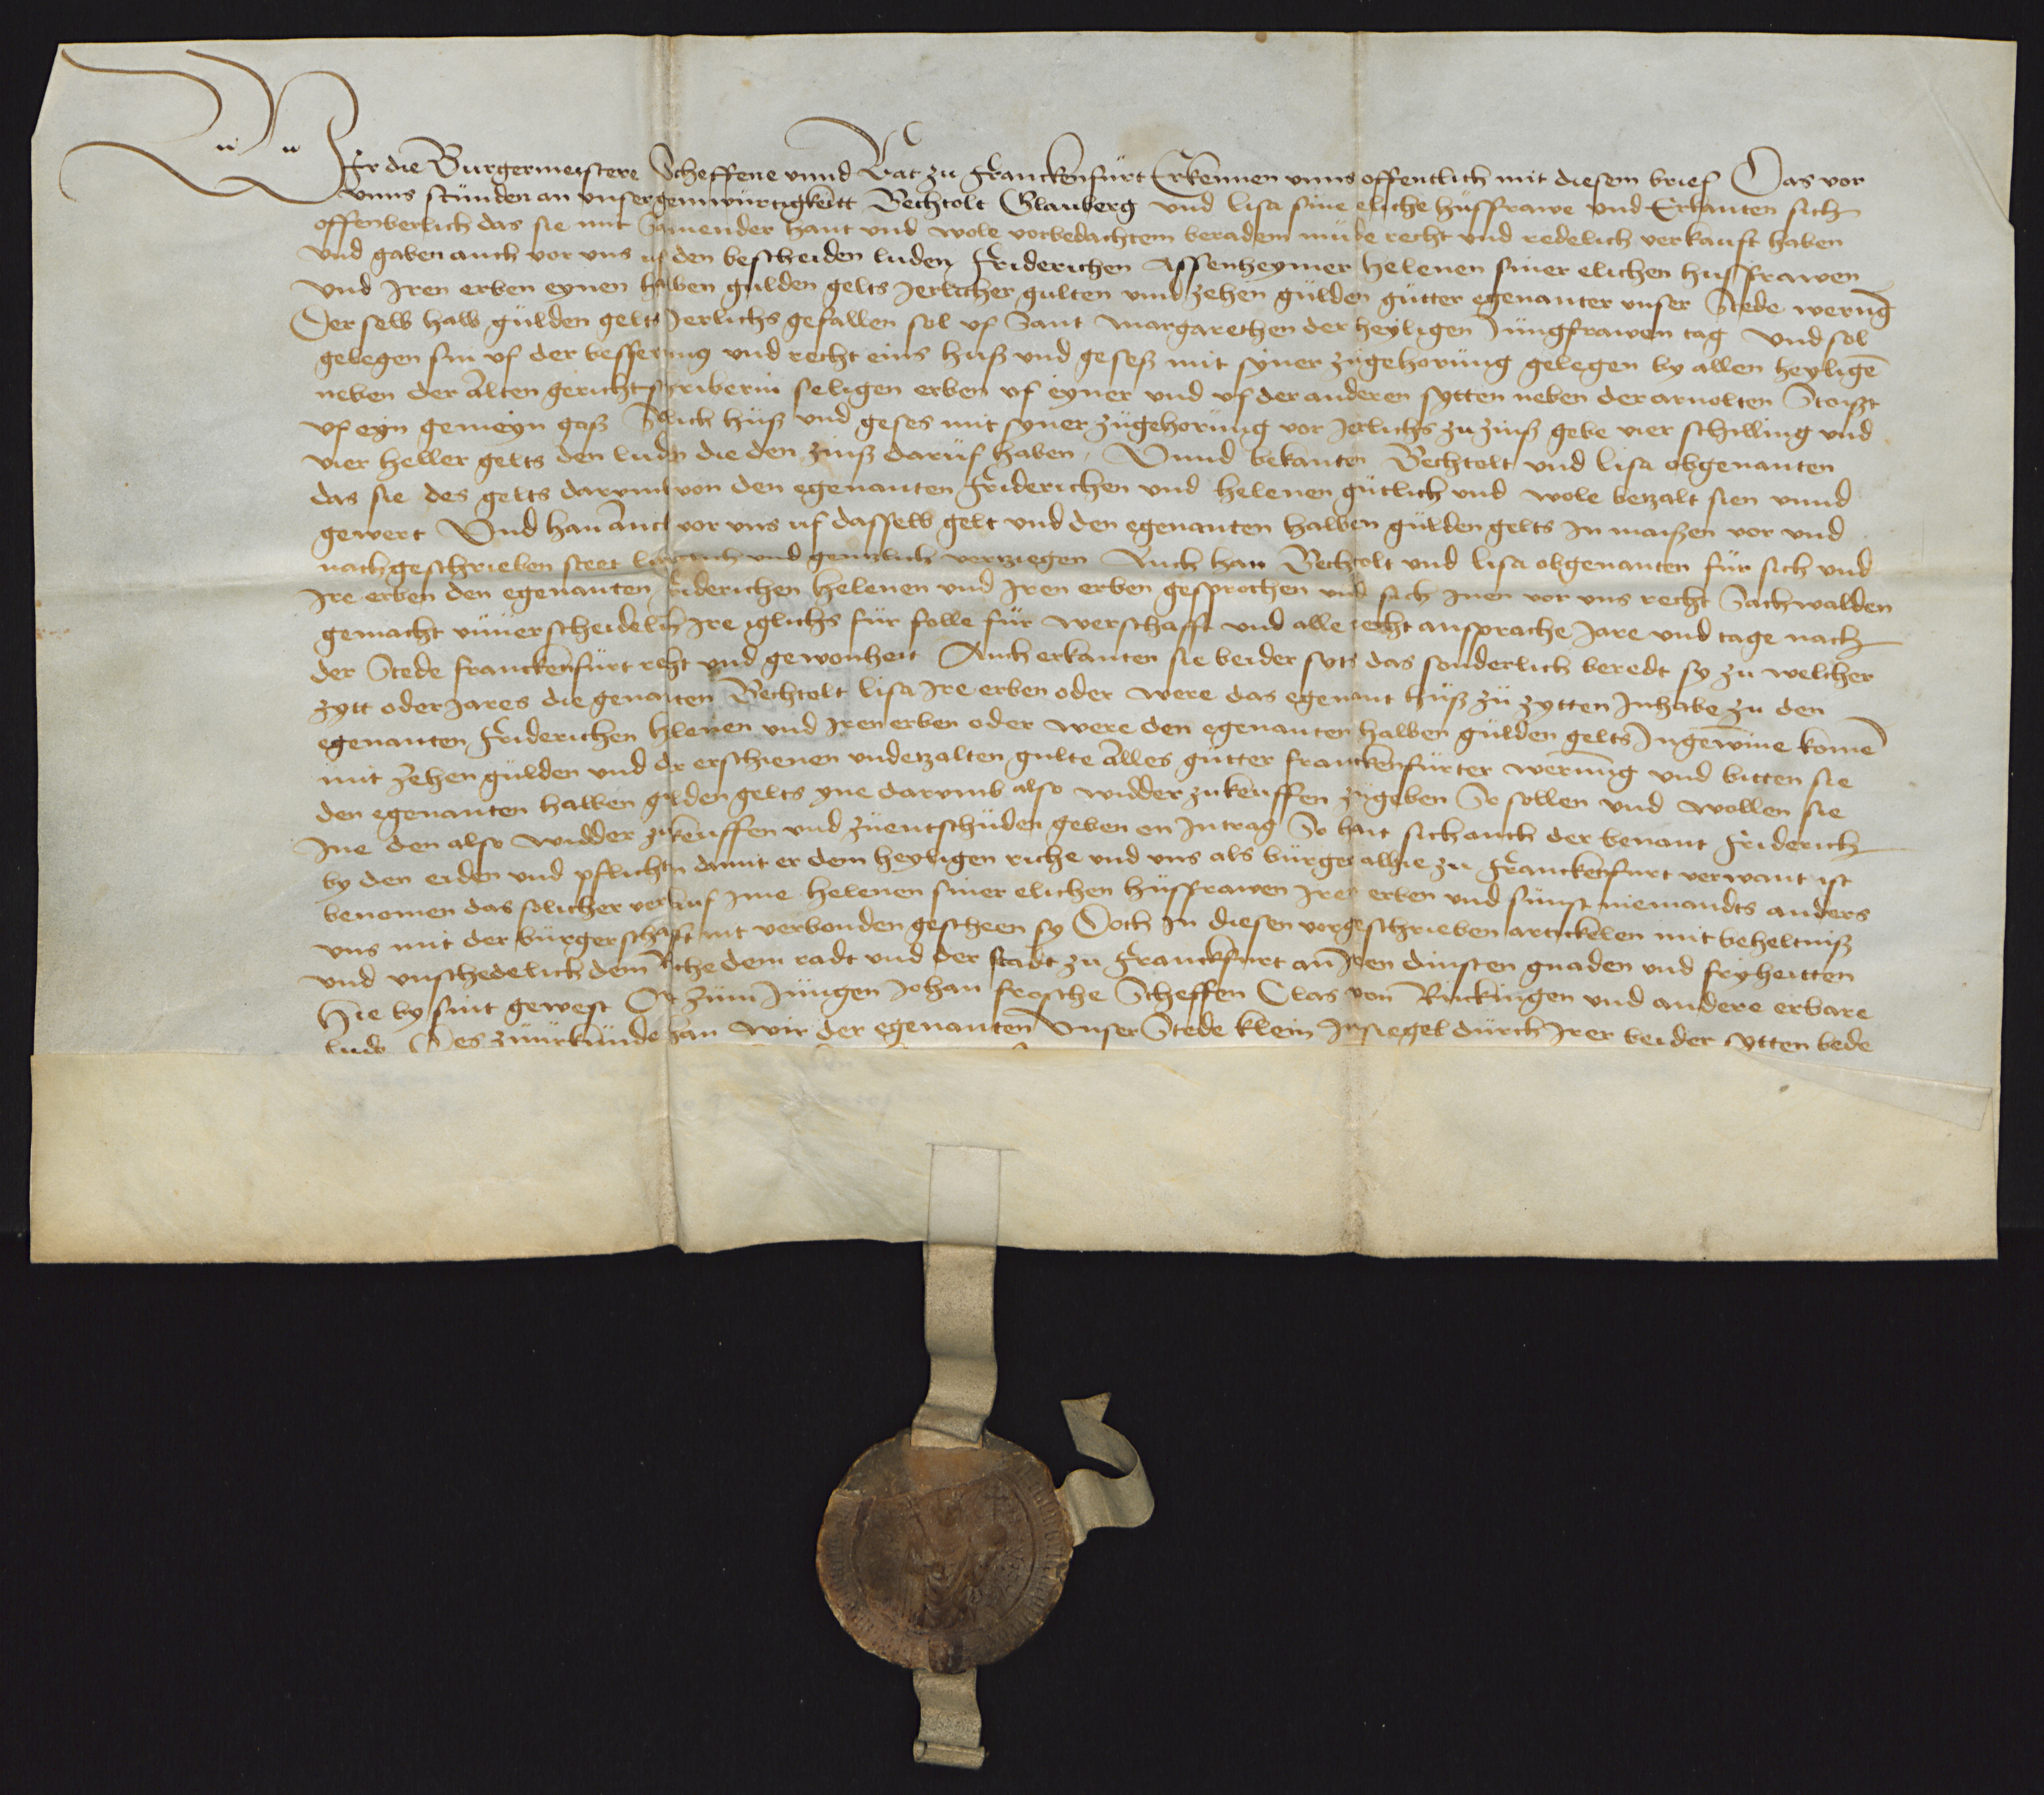 Wir die Burgermeistere Scheffene vnnd Rat zu Franckenfürt Erkennen vnns offentlich mit diesem brief Das vor
vnns stünden an vnser geinwürtigkeitt Bechtolt Glauberg vnd lisa sine eliche hüsfrawe vnd Erkanten sich
offenberlich das sie mit Samender hant vnd wole vorbedachtem beradem müde recht vnd redelich verkauft haben
vnd gaben auch vor vns uf den bescheiden luden Friderichen Assenheymer helenen siner elichen husfrawen
vnd Iren erben eynen halben gulden gelts Jerlicher gulten vmb zehen gülden gütter egenanter vnser Stede werūg
Der selb halb gülden gelts Jerlichs gefallen sol vf Sant margarethen der heyligen Jüngfrawen tag vnd sol
gelegen sin vf der besserung vnd recht eins huß vnd geseß mit syner zügehorüng gelegen by allen heyligē
neben der Alten gerichtschriberin seligen erben vf eyner vnd vf der anderen sytten neben der arnolten Stoißt
vf eyn gemeyn gaß Solich hüß vnd geses mit syner zügehorüng vor Jerlichs zu zinß gebe vier schilling vnd
vier heller gelts den luden die den zinß darüf haben, Vnnd bekanten Bechtolt vnd lisa obgenanten
das sie des gelts darvmb von den egenanten Friderichen vnd helenen gütlich vnd wole betzalt sien vnnd
gewert Vnd han auch vor vns uf dasselb gelt vnd den egenanten halben gülden gelts In maißen vor vnd
nachgeschrieben steet luterlich vnd gentzlich vertziegen Auch han Bechtolt vnd lisa obgenanten für sich vnd
Ire erben den egenanten Friderichen helenen vnd Iren erben gesprochen vnd sich Inen vor vns recht Sachwalden
gemacht vnuerscheidelich Ire iglichs für folle für werschafft vnd alle recht ansprache Jare vnd tage nach
der Stede franckenfürt recht vnd gewonheit Auch erkanten sie beider syts das sonderlich beredt sy zu welcher
zytt oder Jares die genanten Bechtolt lisa Ire erben oder were das egenant hüß zü zytten Inhabe zu den
egenanten Friderichen helenen vnd Iren erben oder were den egenanten halben gülden gelts Ingewinne komē
mit zehen gülden vnd der erschienen vnbetzalten gulte Alles gütter franckenfürter werüng vnd bitten sie
den egenanten halben gulden gelts yne darvmb also widder zukeuffen zugeben So sollen vnd wollen sie
Ine den also widder zukeuffen vnd züentschüden geben on Intrag So hait sich auch der benant Friderich
by den eiden vnd pflichten damit er dem heyligen riche vnd vns als bürger alhie zu Franckenfurt verwant ist
benomen das solicher verkauf ime helenen siner elichen hüsfrawen Iren erben vnd sünst niemandts anders
vns mit der bürgerschafft nit verbonden gescheen sy Doch In diesen vorgeschrieben artickelen mit beheltniß
vnd vnschedelich dem Riche dem radt vnd der stadt zu Franckfurt an Iren dinsten gnaden vnd fryheitten
Hie by sint gewest Ort züm Jüngen Johan frosche Scheffen Clas von Rückingen vnd andere erbare
lude Des zuürkünde han wir der egenanten vnser Stede klein Insiegel dürch Irer beider sytten bede